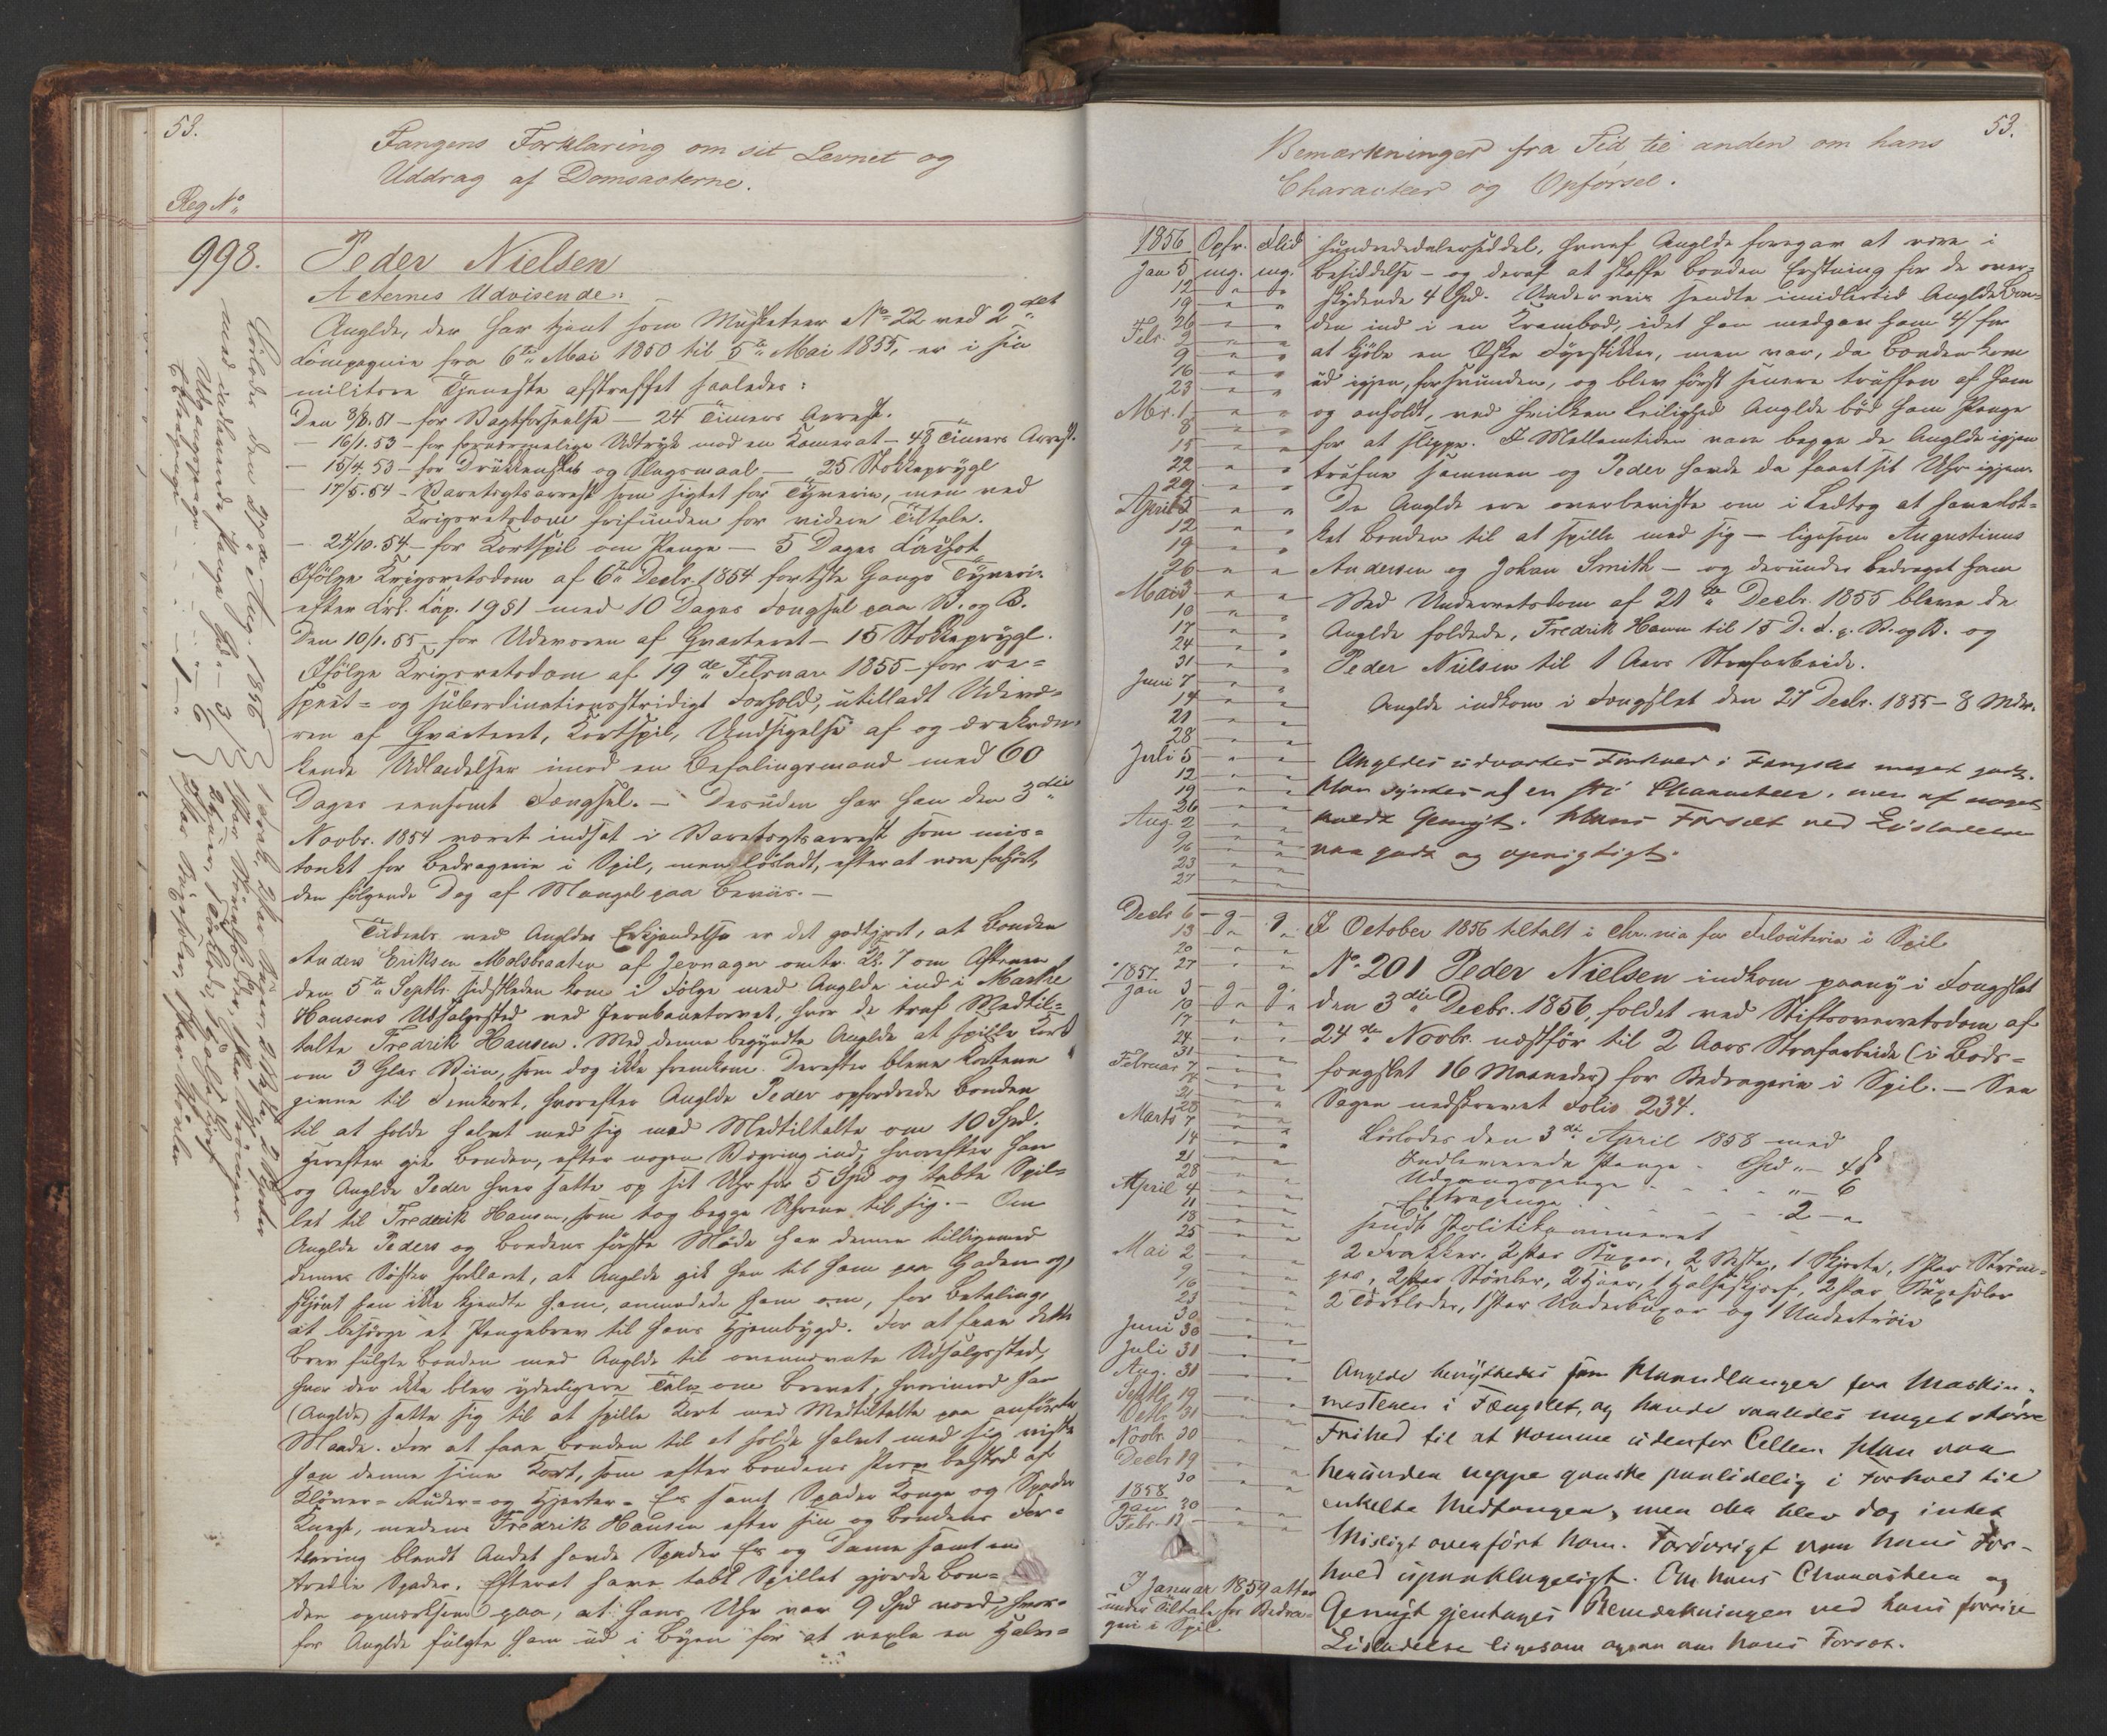 53.
Fangens Forklaring om sit Levnet og
Uddrag af Domsacterne.
Reg No
998.
Peder Nielsen
Acternes Udvisende:
Anglde, der har tjent som Musketeer No 22 ved 2det
Compagnie fra 6te Mai 1850 til 5te Mai 1855, er i sin
militære Tjeneste afstraffet saaledes:
Den 8/8.51 – for Vagtforseelse – 24 Timers Arrest.
– 16/1.53 – for fornærmelige Udtryk mod en Kamerat – 48 Timers Arrest.
– 15/4.53 – for Drukkenskab og Slagsmaal – 25 Stokkeprygl
– 17/5.54 – Varetægtsarrest som sigtet for Tyverie, men ved
Krigsretsdom frifunden for videre Tiltale.
– 24/10.54 – for Kortspil om Penge – 5 Dages Cachot
Ifølge Krigsretsdom af 6te Decbr. 1854 for 1ste Gangs Tyverie
efter Crl. Cap. 19 § 1 med 10 Dages Fængsel paa V. og B.
Den 10/1.55 – for Udeværen af Qvarteret – 15 Stokkeprygl.
Ifølge Krigsretsdom af 19de Februar 1855 – for re-
spect- og subordinationsstridigt Forhold, utilladt Udevæ-
ren af Qvarteret, Kortspil, Undsigelse af og ærekræn-
kende Udladelser imod en Befalingsmand med 60
Dages eensomt Fængsel. – Desuden har han den 3die
Novbr. 1854 været indsat i Varetægtsarrest som mis-
tænkt for Bedragerie i Spil, men løsladt, efter at være forhørt,
den følgende Dag af Mangel paa Beviis. –
Tildeels ved Angldes Erkjendelse er det godtgjort, at Bonden
Anders Eriksen Molsbraaten af Jevnager omtr. Kl. 7 om Aftenen
den 5te Septbr. sidstleden kom i Følge med Anglde ind i Marthe
Hansens Udsalgssted ved Jernbanetorvet, hvor de traf Medtil-
talte Fredrik Hansen. Med denne begyndte Anglde at spille Kort
om 3 Glas Viin, som dog ikke fremkom. Derefter bleve Kortene
givne til Femkort, hvorefter Anglde Peder opfordrede Bonden
til at holde halvt med sig mod Medtiltalte om 10 Spd.
Herefter gik Bonden, efter nogen Vægring ind, hvorefter han
og Anglde Peder hver satte op sit Uhr for 5 Spd og tabte Spil-
let til Fredrik Hansen, som tog begge Uhrene til sig. – Om
Anglde Peders og Bondens første Møde har denne tilligemed
dennes Søster forklaret, at Anglde gik hen til ham paa Gaden og,
skjønt han ikke kjendte ham, anmodede ham om, for Betaling,
at besørge et Pengebrev til hans Hjembygd. For at faae dette
Brev fulgte Bonden med Anglde til ovennævnte Udsalgssted,
hvor der ikke blev yderligere Tale om Brevet, hvorimod han
(Anglde) satte sig til at spille Kort med Medtiltalte paa anførte
Maade. For at faae Bonden til at holde halvt med sig viste
han denne sine Kort, som efter Bondens Sigende bestod af
Kløver- Ruder- og Hjerter- Es samt Spader Konge og Spader
Knegt, medens Fredrik Hansen efter sin og Bondens For-
klaring blandt Andet havde Spader Es og Dame samt en
tredie Spader. Efterat have tabt Spillet gjorde Bon-
den opmærksom paa, at hans Uhr var 9 Spd værd, hvor-
for Anglde fulgte ham ud i Byen for at vexle en Halv-
Løslades den 27de Aug. 1856
med indleverede Penge Spd – 3/
Udgangspenge – 6
Extrapenge – 1 –
53.
Bemærkninger fra Tid til anden om hans
Character og Opførsel.
1856 Opfr. Flid
Jan 5 mg. mg.
12
19
26
Febr. 2
9
16
23
Mr. 1
8
15
22
29
April 5
12
19
26
Mai 3
10
17
24
31
Juni 7
14
21
28
Juli 5
12
19
26
Aug. 2
9
16
23
27
hundrededalerseddel, hvoraf Anglde foregav at være i
Besiddelse – og deraf at skaffe Bonden Erstatning for de over-
skydende 4 Spd. Underveis sendte imidlertid Anglde Bon-
den ind i en Krambod, idet han medgav ham 4/ for
at kjøbe en Æske Fyrstikker, men var, da Bonden kom
ud igjen, forsvunden, og blev først senere truffen af ham
og anholdt, ved hvilken Leilighed Anglde bød ham Penge
for at slippe. I Mellemtiden vare begge de Anglde igjen
trufne sammen og Peder havde da faaet sit Uhr igjen.
De Anglde ere overbeviste om i Ledtog at have lok-
ket Bonden til at spille med sig – ligesom Augustinus
Andersen og Johan Smith – og derunder bedraget ham
Ved Underretsdom af 21de Decbr. 1855 bleve de
Anglde fældede, Fredrik Hansen til 15 D. F. p. V. og B. og
Peder Nielsen til 1 Aars Strafarbeide.
Anglde indkom i Fængslet den 27 Decbr. 1855 – 8 Mdr.
Angldes udvortes Forhold i Fængslet meget godt.
Han syntes af en fri Characteer, men af noget
koldt Gemyt. Hans Forsæt ved Løsladelsen
var godt og oprigtigt.
Decbr 6 – g – g.
13
20
27
1857
Jan 3 – g – g.
10
17
24
31
Februar 7
14
21
28
Marts 7
14
21
28
April 4
11
18
25
Mai 2
9
16
23
30
Juni 30
Juli 31
Aug. 31
Septbr 19
Octbr 31
Novbr 30
Decbr 19
30
1858
Jan 30
Febr. 12
I Januar 1859 atter
under Tiltale for Bedra-
geri i Spil.
I October 1856 tiltalt i Chr.nia for Filouterie i Spil
No 201 Peder Nielsen indkom paany i Fængslet
den 3die Decbr. 1856, fældet ved Stiftsoverretsdom af
24de Novbr. næstfør til 2 Aars Strafarbeide (i Bods-
fængslet 16 Maaneder) for Bedragerie i Spil. – See
Sagen nedskrevet Folio 234.
Løslades den 3de April 1858 med
Indleverede Penge – Spd " – 4 ß
Udgangspenge – " – 6
Extrapenge – 2 – "
sendt Politikammeret
2 Frakker, 2 Par Buxer, 2 Veste, 1 Skjorte, 1 Par Strøm-
per, 2 Par Støvler, 2 Huer, 1 Halstørklæde, 2 Par Buxeseler
2 Tørklæder, 1 Par Underbuxer og 1 Undertrøie
Anglde benyttedes som Haandlanger for Maskin-
mesteren i Fængslet, og havde saaledes noget større
Frihed til at komme udenfor Cellen. Han var
herunder neppe ganske paalidelig i Forhold til
enkelte Medfanger, men der blev dog intet
Misligt overført ham. Forøvrigt var hans For-
hold upaaklageligt. Om hans Characteer og
Gemyt gjentages Bemærkningen ved hans forrige
Løsladelse ligesom ogsaa om hans Forsæt.